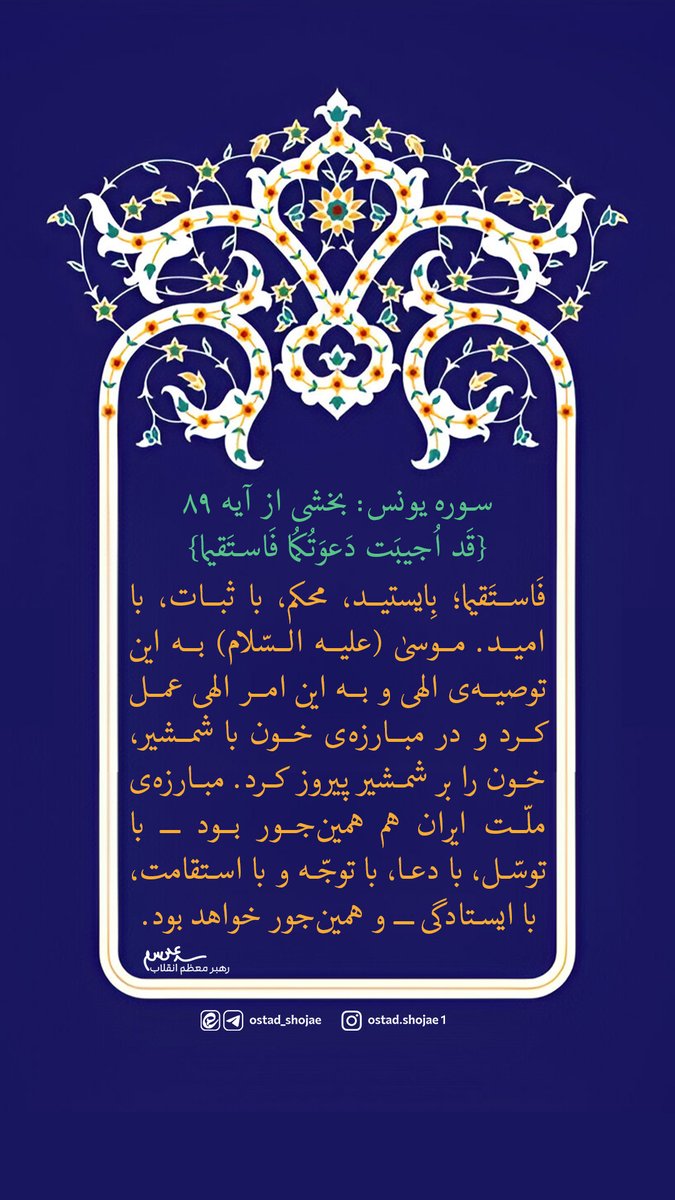 سوره یونس: بخشی از آیه ۸۹
{قَد اُجیبَت دَعوَتُکُما فَاستَقیما}
فَاستَقیما؛ بِایستید، محکم، با ثبات، با
امید. موسیٰ (علیه السّلام) به این
توصیه‌ی الهی و به این امر الهی عمل
کرد و در مبارزه‌ی خون با شمشیر،
خون را بر شمشیر پیروز کرد. مبارزه‌ی
ملّت ایران هم همین‌جور بود ــ با
توسّل، با دعا، با توجّه و با استقامت،
با ایستادگی ــ و همین‌جور خواهد بود.
رهبر معظم انقلاب
ostad_shojae ostad.shojae1